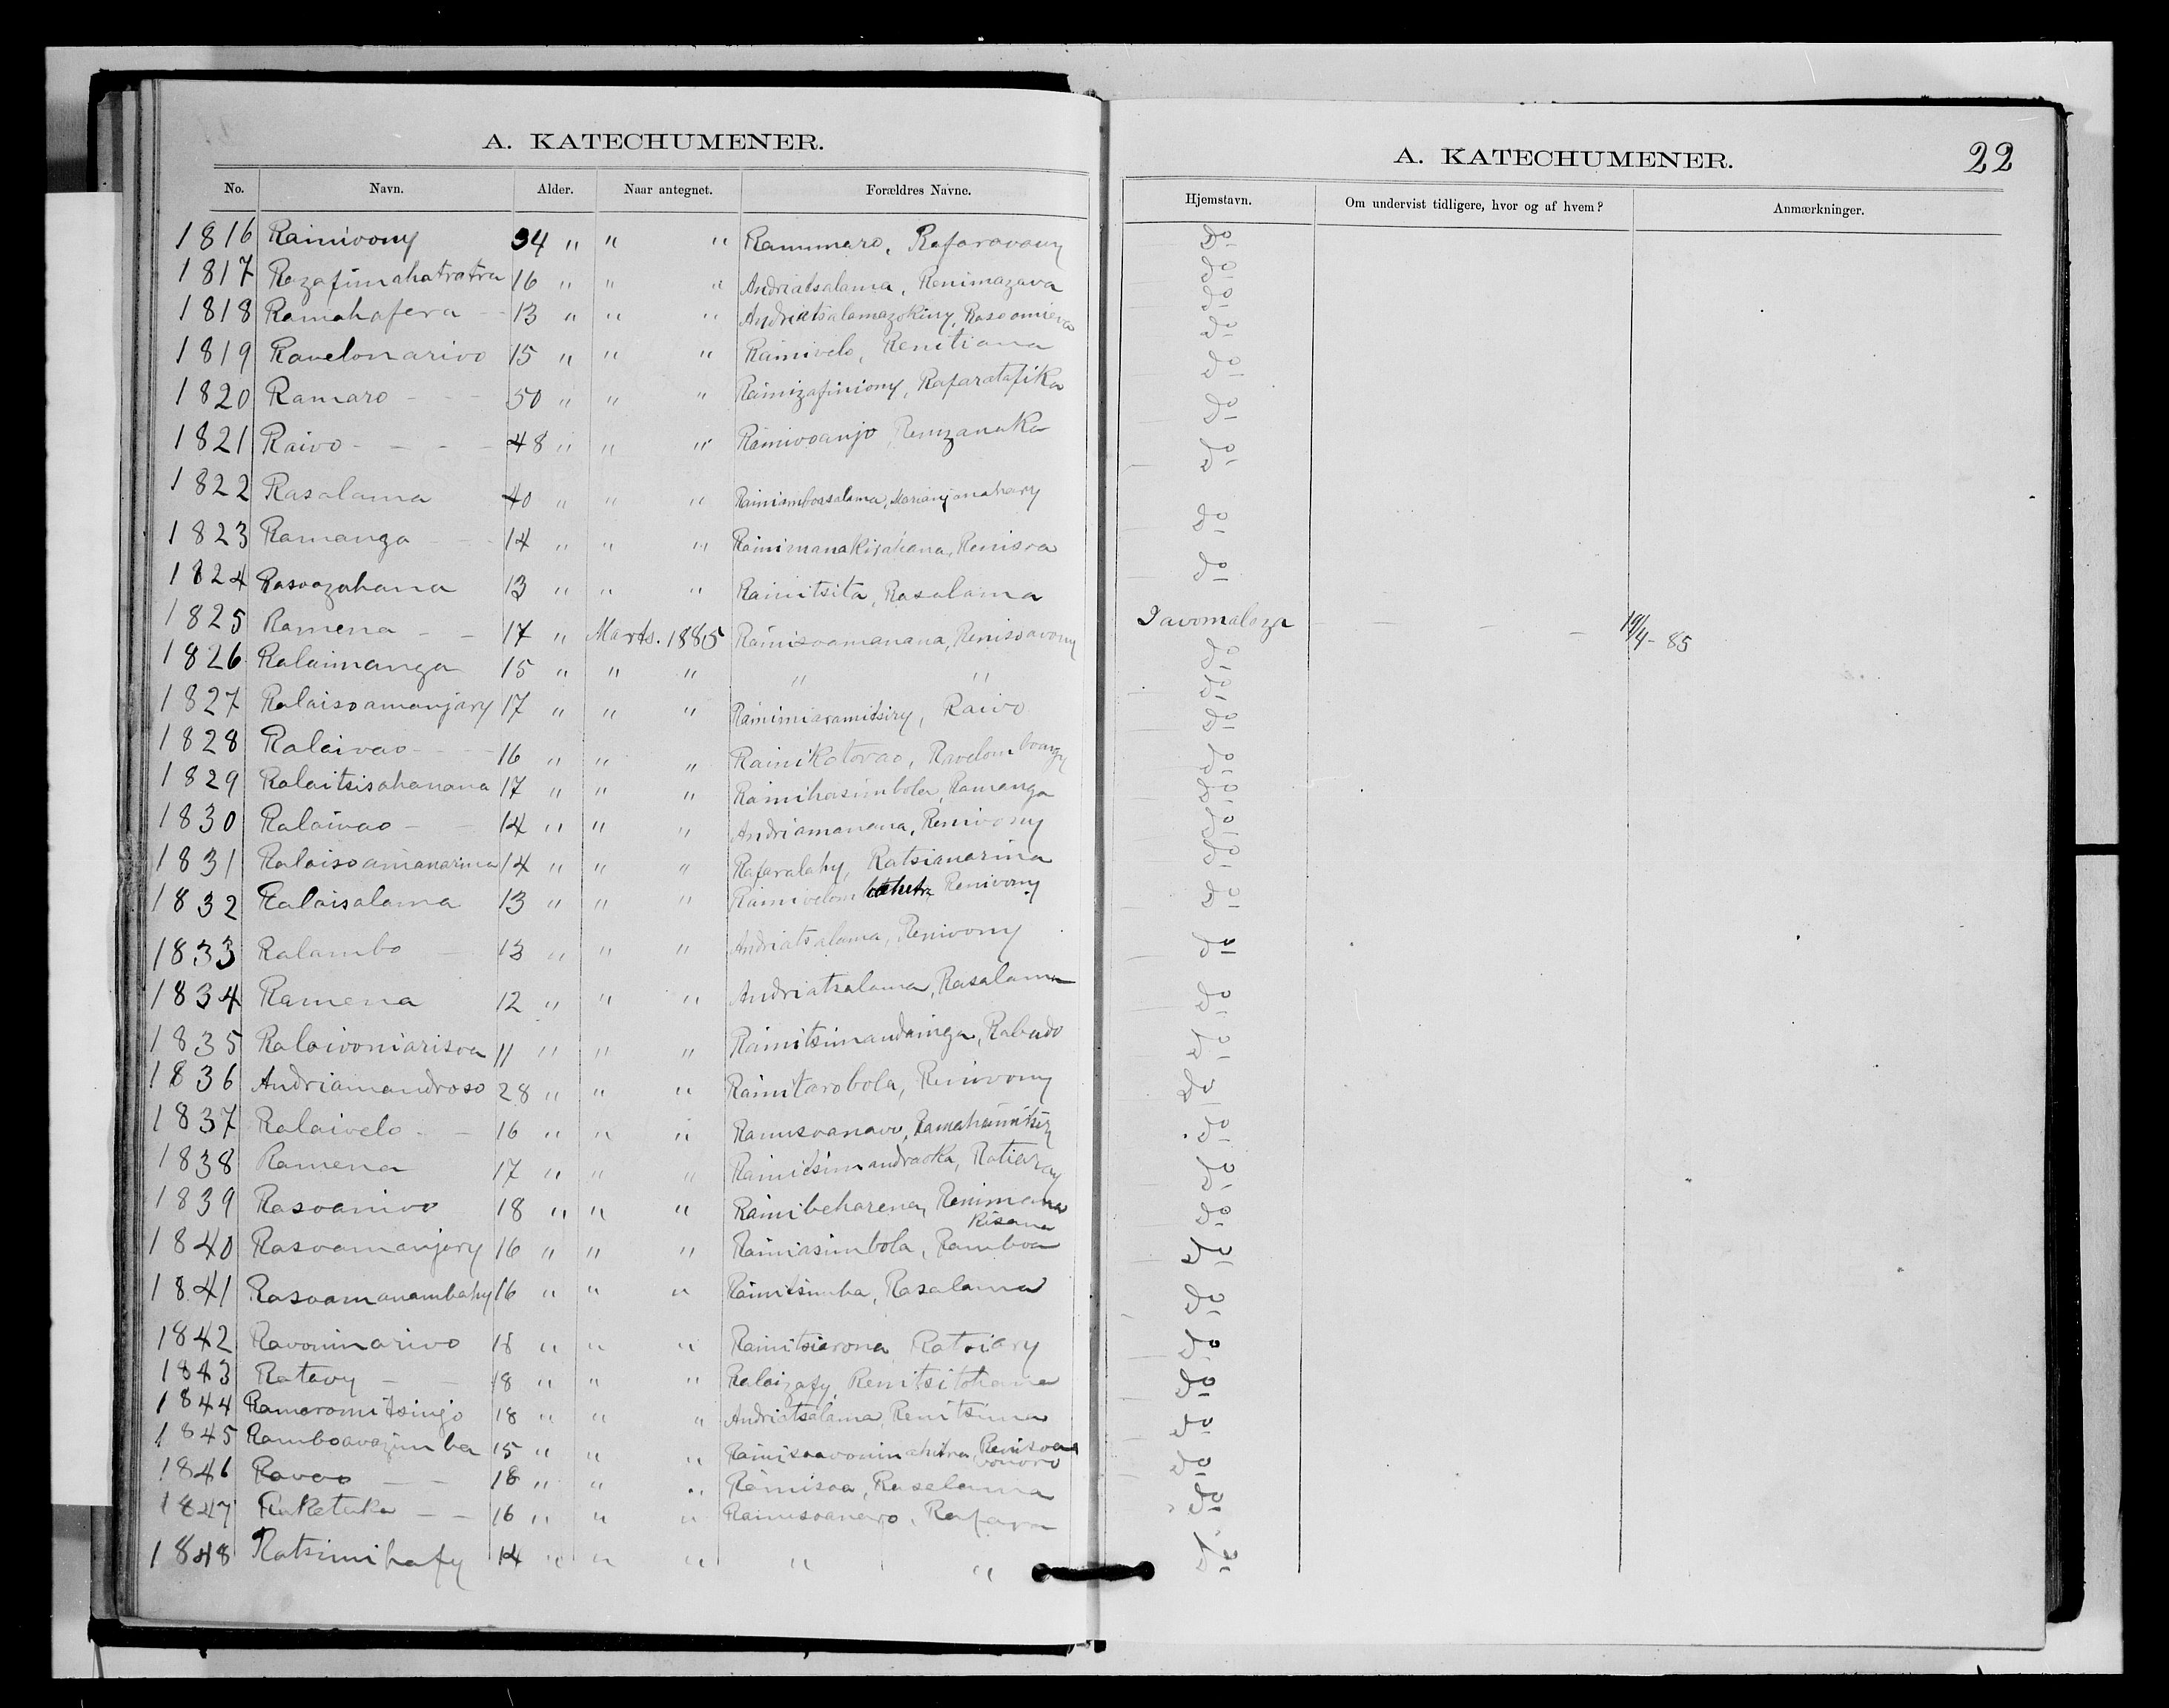 A. KATECHUMENER.
No. Navn. Alder. Naar antegnet. Forældres Navne.
1816 Rainivony 34 " " " Rainimaro, Rafaravony
1817 Razafimahatratra 16 " " " Andriatsalama, Renimazava
1818 Ramahafera - - 13 " " " Andriatsalamazokiny, Rasoamieva
1819 Ravelonarivo 15 " " " Rainivelo, Renitiana
1820 Ramaro - - - 50 " " " Rainizafiniony, Rafaratafika
1821 Raivo - - - - 48 " " " Rainivoanjo Renizanaka
1822 Rasalama 40 " " " Rainiamboasalama,
1823 Ramanga - - - 14 " " " Rainimanakisahana, Renisoa
1824 Rasoazahana 13 " " " Rainitsita, Rasalama
1825 Ramena - - 17 " Marts. 1885 Rainisoamanana, Renisoavony
1826 Ralaimanga 15 " " " " "
1827 Ralaisoamanjary 17 " " " Rainimiaramitsiry, Raivo
1828 Ralaivao - - - 16 " " " Rainikotovao, Ravelomboangy
1829 Ralaitsisahanana 17 " " " Rainihasimbola, Ramanga
1830 Ralaivao - - 14 " " " Andriamanana, Renivony
1831 Ralaisoamanarina 14 " " " Rafaralahy, Ratsianarina
1832 Ralaisalama 13 " " " Renivony
1833 Ralambo - 13 " " " Andriatsalama, Renivony
1834 Ramena 12 " " " Andriatsalama, Rasalama
1835 Ralaivoniarisoa 11 " " " Rainitsimandainga, Rabodo
1836 Andriamandroso 28 " " " Rainitarobola, Renivony
1837 Ralaivelo - - 16 " " " Rainisoanavo, Ramahaimitsiry
1838 Ramena 17 " " " Rainitsimandraoka, Ratiaray
1839 Rasoanivo 18 " " " Rainibeharena, Renimana
kisana
1840 Rasoamanjary 16 " " " Rainiasimbola, Ramboa
1841 Rasoamanambahy 16 " " " Rainitsimba, Rasalama
1842 Ravoninarivo 18 " " " Rainitsiarona Ratsiary
1843 Ratavy - - 18 " " " Ralaizafy, Renitsitohana
1844 Ramaromitsinjo 18 " " " Andriatsalama, Renitsima
1845 Ramboavazimba 15 " " " Rainisoavoninahitra, Renisoa
vonoro
1846 Ravao - - 18 " " " Rainisoa, Rasalama
1847 Raketaka - - 16 " " " Rainisoanavo, Rafara
1848 Ratsimihafy 14 " " " " "
A. KATECHUMENER. 22
Hjemstavn. Om undervist tidligere, hvor og af hvem? Anmærkninger.
do
do
do
do
do
do
do
do
do
Iavomalaza - - - - 19/4 - 85
do
do
do
do
do
do
do
do
do
do
do
do
do
do
do
do
do
do
do
do
do
do
do